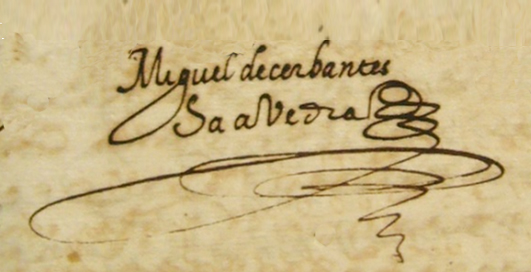 Miguel decerbantes
Saavedra